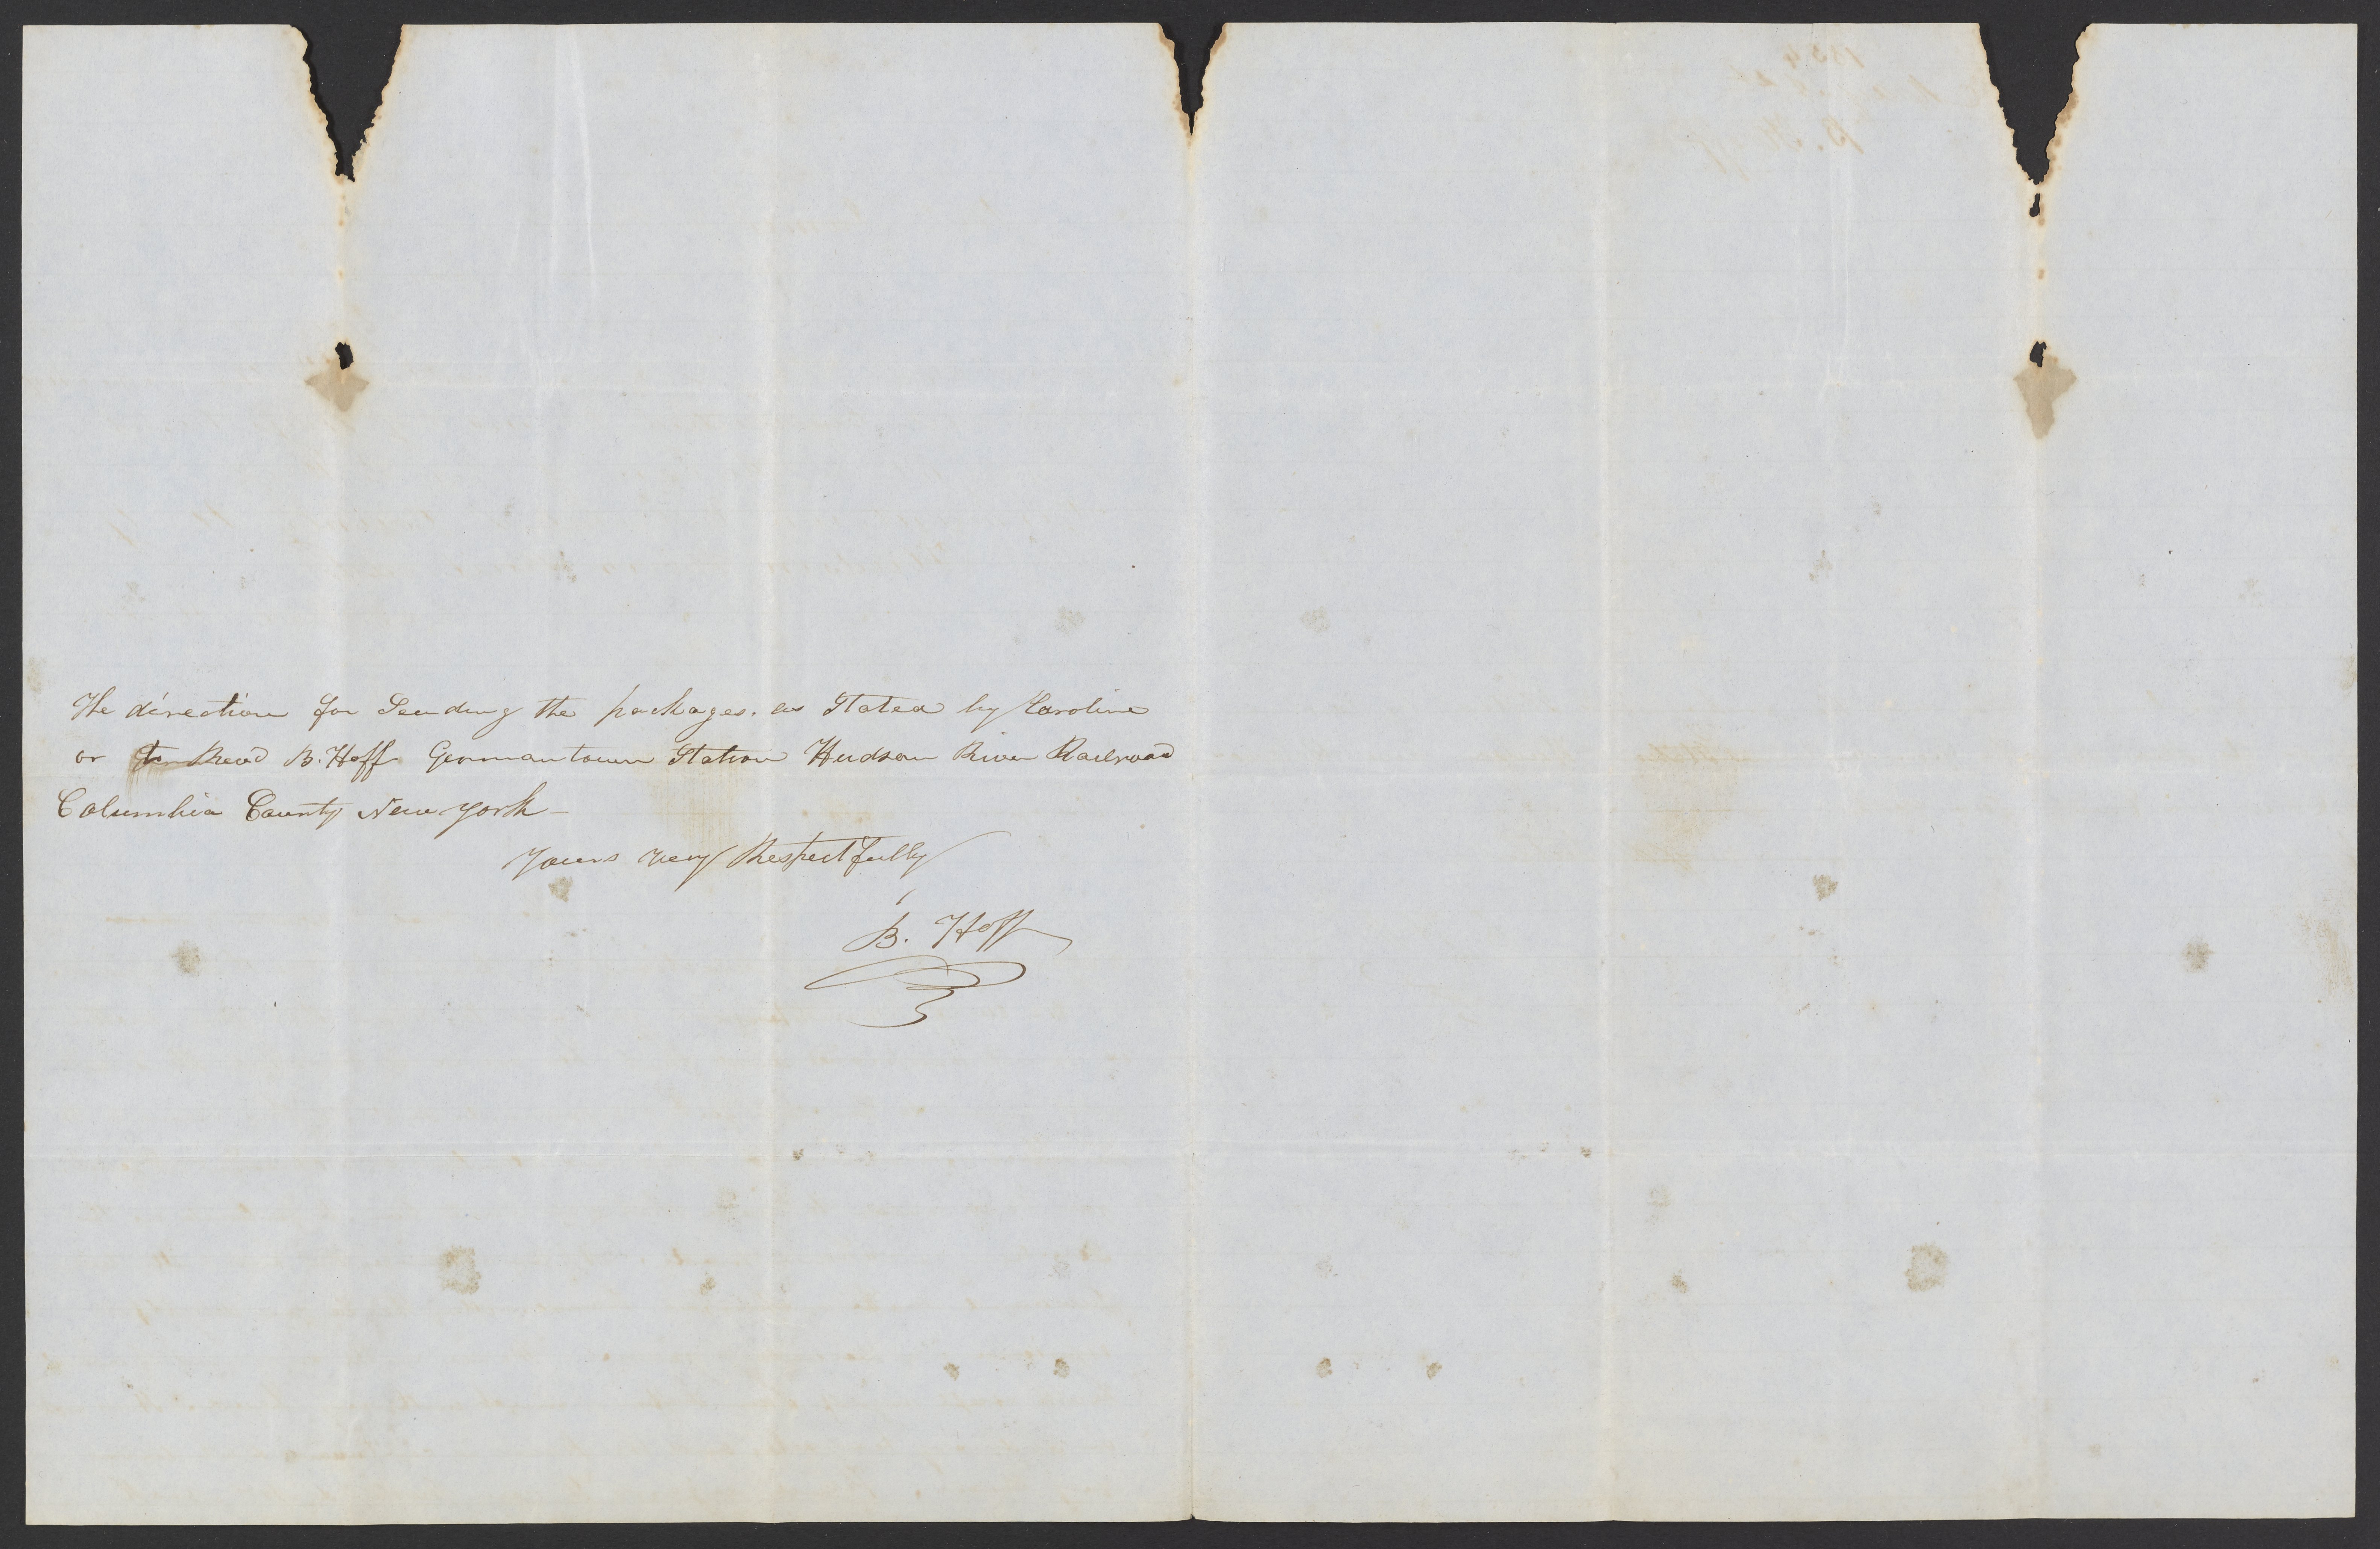 The direction for Sending the packages. as Stated by Caroline
or to Rev'd B. Hoff Germantown Station Hudson River Railroad
Columbia County New York —
Yours very Respectfully
B. Hoff